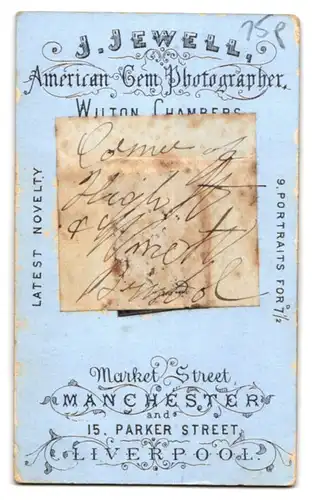 75p
J. JEWELL,
American Gem Photographer.
WILTON CHAMBERS
Corner of
High St
& Wine St
Bristol
LATEST NOVELTY
9. PORTRAITS FOR 7½
Market Street,
MANCHESTER
and
15, PARKER STREET,
LIVERPOOL.